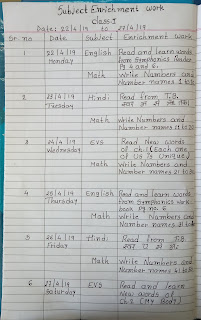 Subject Enrichment work
Class I
Date: 22/4/19 to 27/4/19
Sr. no Date Subject Enrichment work
1 22/4/19 English Read and learn words
Monday from Symphonics Reader
Pg 4 and 6.
Math Write Numbers and
Number names 1 to
2 23/4/19 Hindi Read from T.B.
Tuesday
Math Write Numbers and
Number names 11 to
3 24/4/19 EVS Read New words
Wednesday of Ch.1 (Each one
of Us Is Unique)
Math Write Numbers and
Number names 21 to
4 25/4/19 English Read and learn words
Thursday from Symphonics work
book pg no. 6
Math Write Numbers and
Number names 31 to
5 26/4/19 Hindi Read from T.B
Friday
Math Write Numbers and
Number names 41 to
6 27/4/19 EVS Read and learn
Saturday New words of
Ch-2 (My Body)